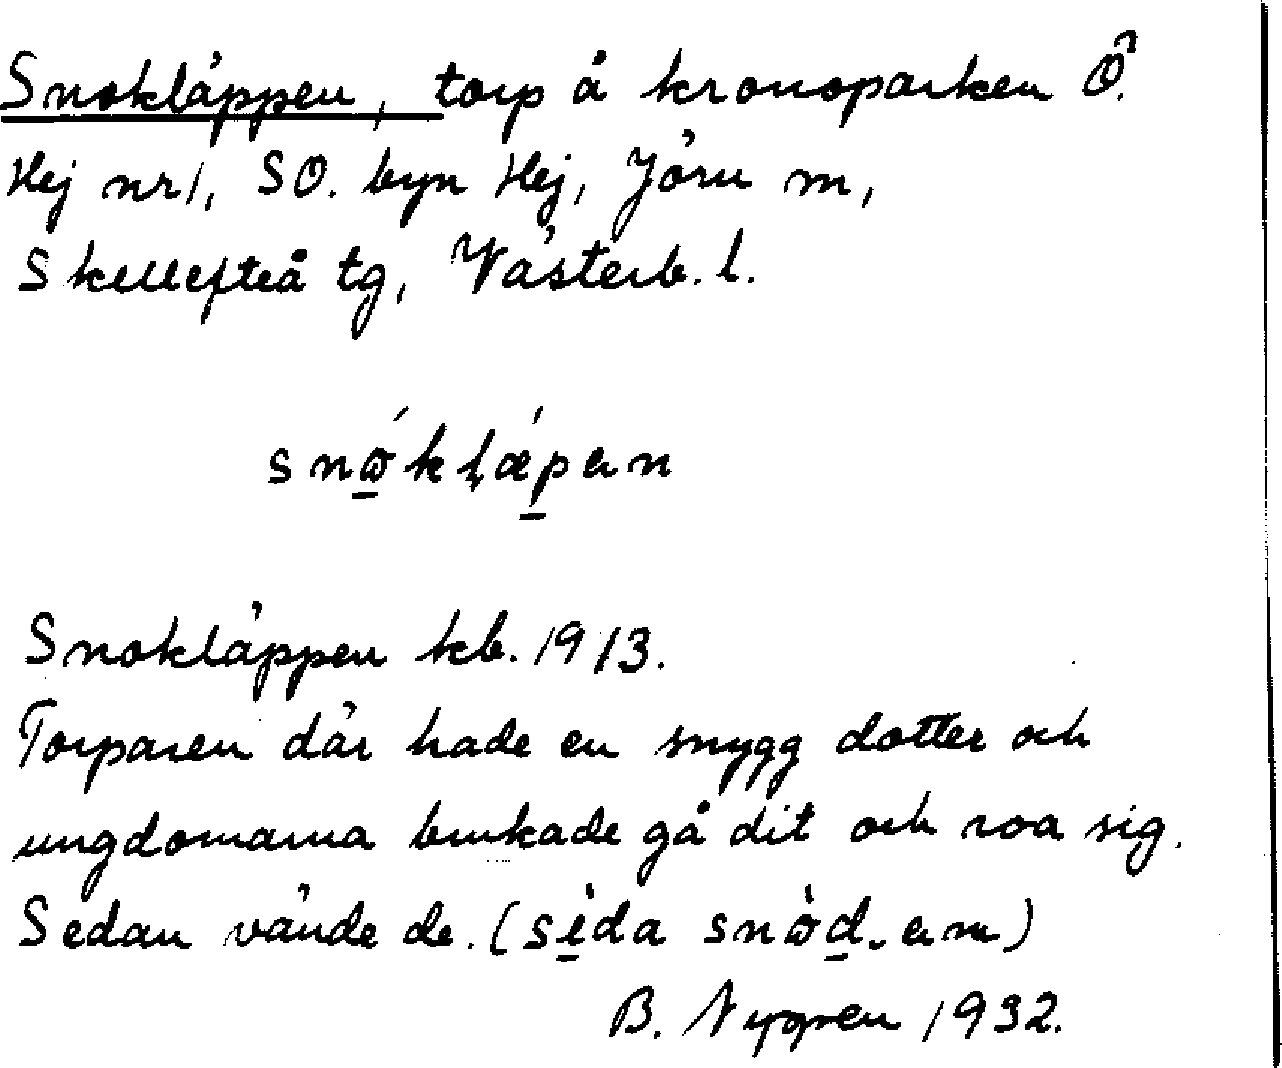 Snokläppen, torp å kronoparken Ö.
Hej nr 1, SO. byn Hej, Jörn m,
Skellefteå tg, Västerb. l.
snώ̱kłǽp̱ən
Snokläppen kb. 1913.
Torparen där hade en snygg dotter och
ungdomarna brukade gå dit och roa sig.
Sedan vände de. (sì̱da snὼḏ. əm)
B. Nygren 1932.